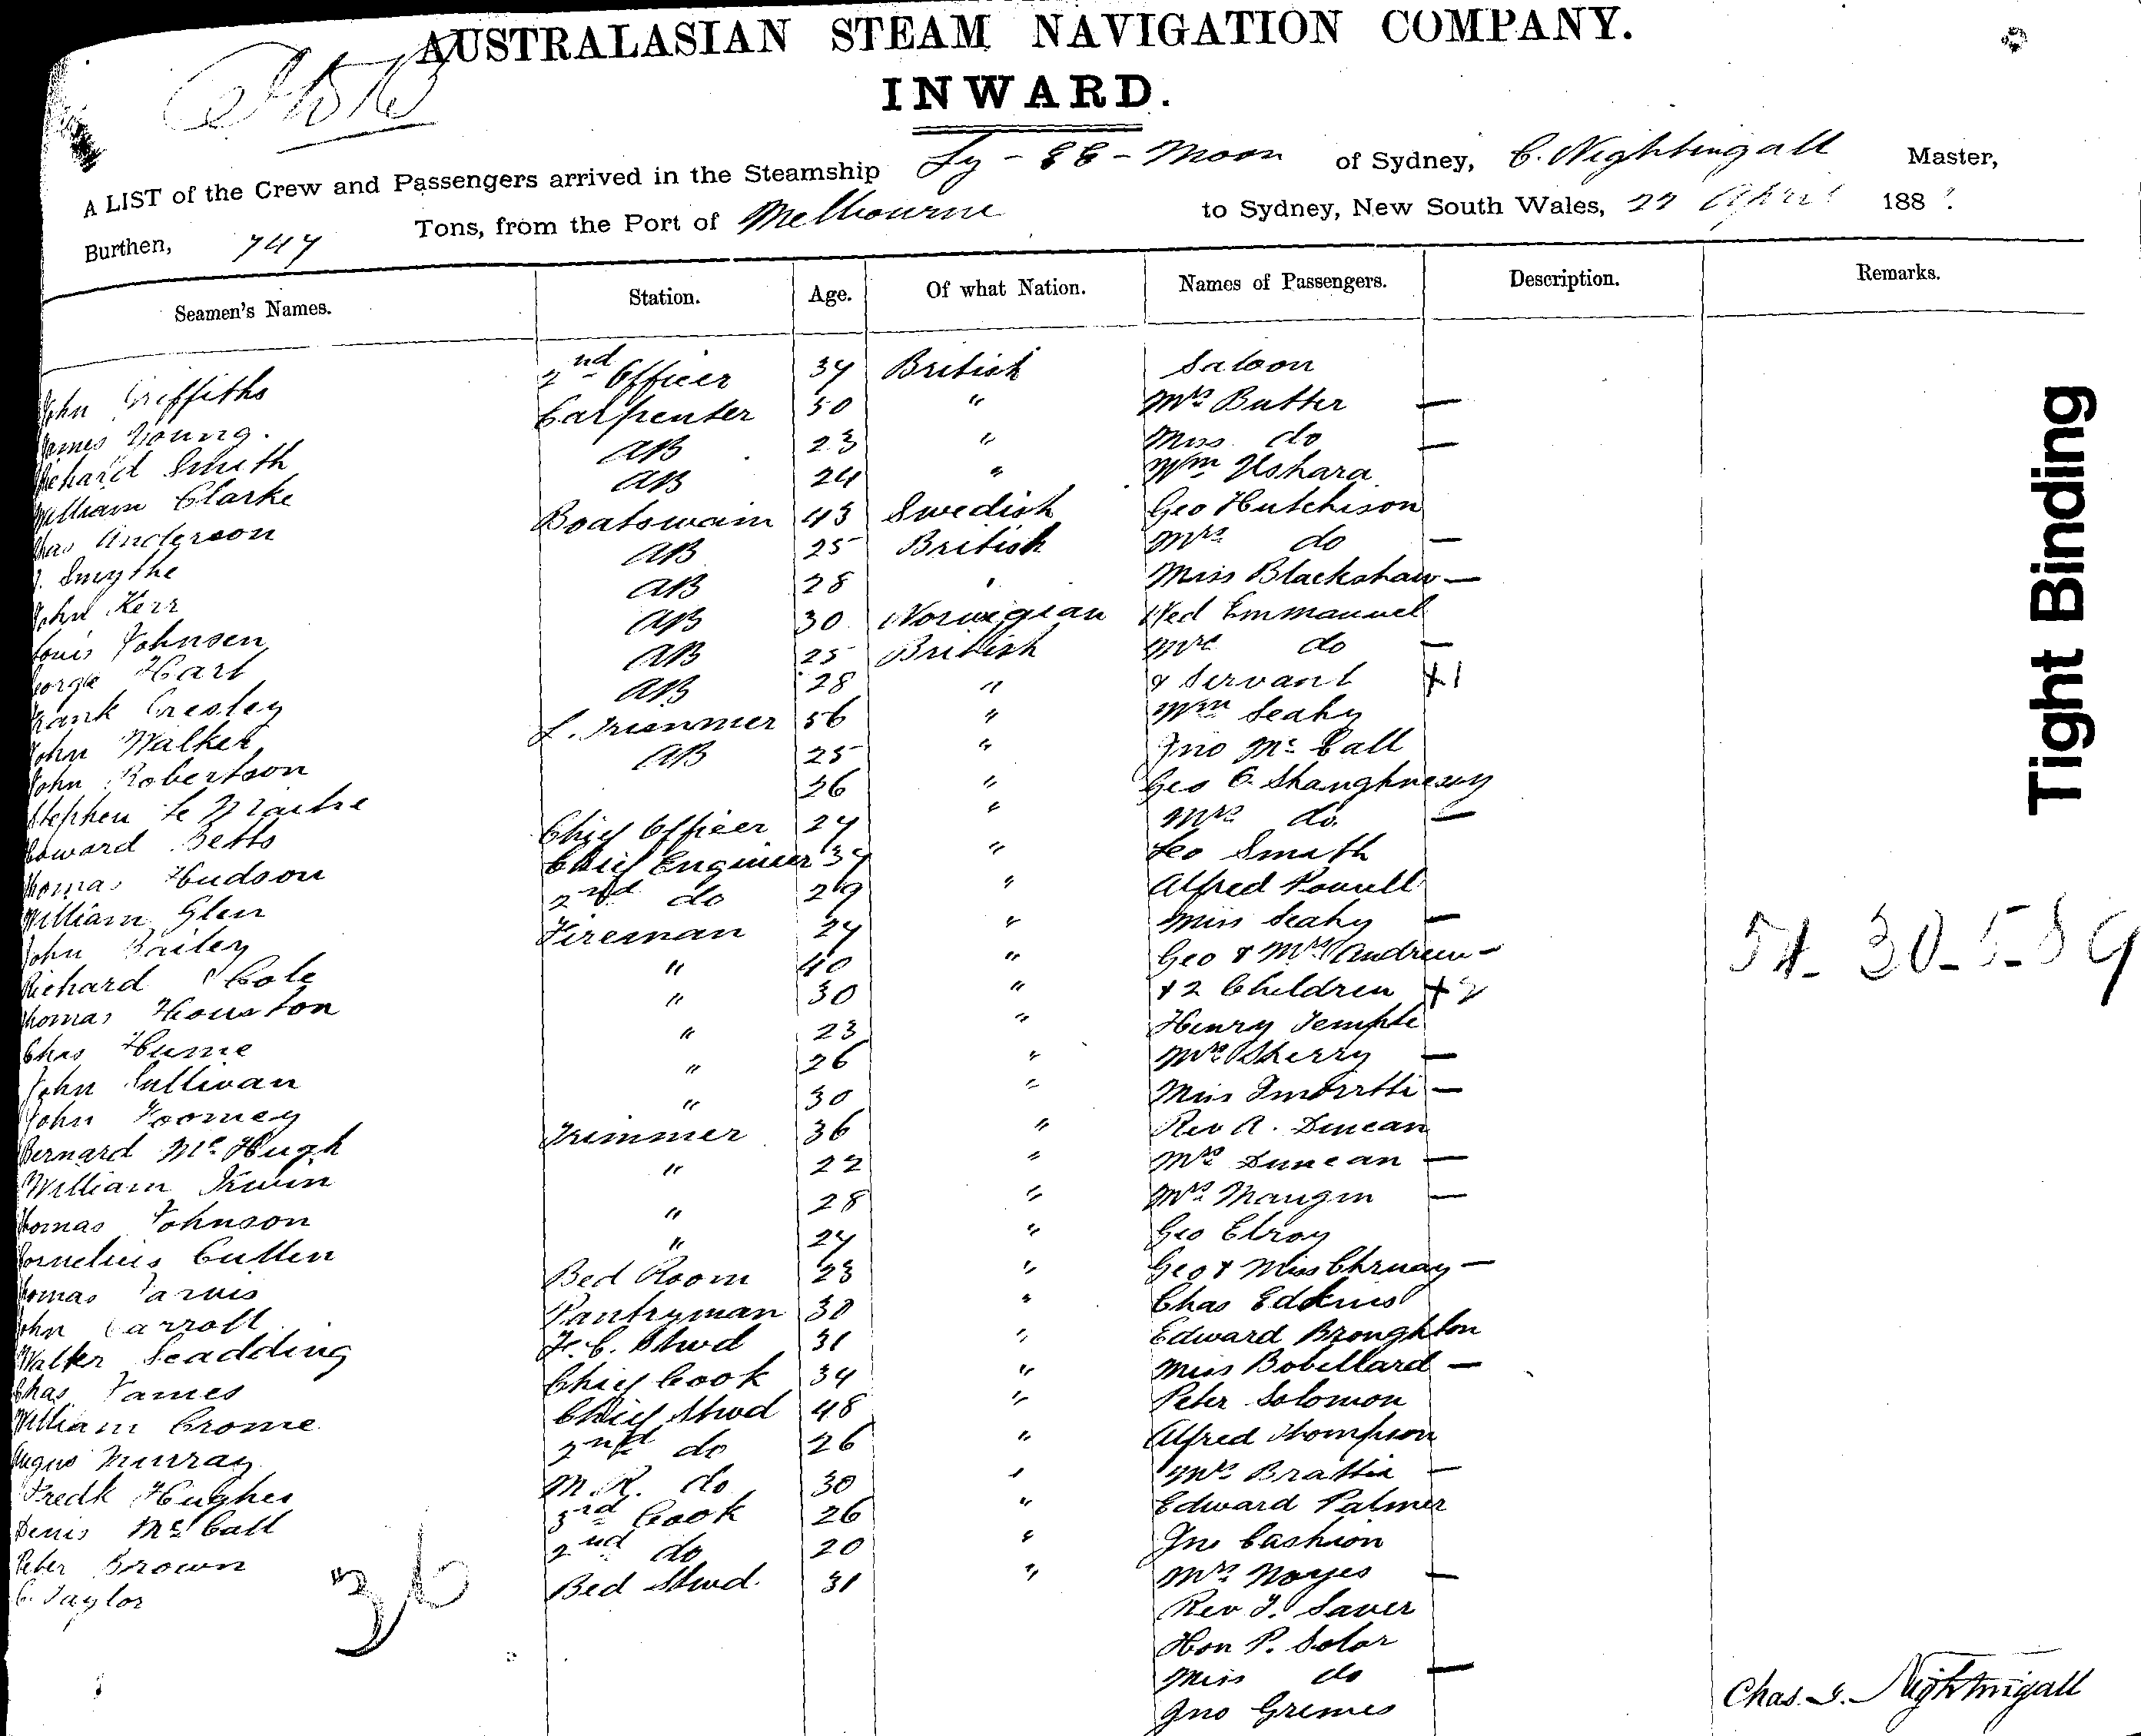 AUSTRALASIAN STEAM NAVIGATION COMPANY.
INWARD.
A LIST of the Crew and Passengers arrived in the Steamship Ly-EE-Moon of Sydney, C. Nightingall Master,
Burthen, 747 Tons, from the Port of Melbourne to Sydney, New South Wales, 22 April 188
Seamen's Names. Station. Age. Of what Nation. Names of Passengers. Description. Remarks.
Saloon
John Griffiths 2nd Officer 34 British Mrs Butter —
James Young. Carpenter 50 " Miss do —
Richard Smith AB 23 " Wm Ushara
William Clarke AB 24 " Geo Hutchison
Chas Anderson Boatswain 43 Swedish Mrs do —
J. Smythe AB 25 British Miss Blackshaw —
John Kerr AB 28 " Ned Emmanuel
Louis Johnsen AB 30 Norwegian Mrs do —
George Hart AB 25 British & Servant +1
Frank Cresley AB 28 " Wm Leahy
John Walker L. Trimmer 56 " Jno Mc Call
John Robertson AB 25 " Geo O. Shaughnessy
Stephen Le Maitre 26 " Mrs do. —
Edward Betts Chief Officer 27 " Leo Smith
Thomas Hudson Chief Engineer 37 " Alfred Powell
William Glen 2nd do 29 " Miss Leahy —
John Bailey Fireman 27 " Geo & Mrs Andrew —
Richard Cole " 40 " & 2 Children +2
Thomas Houston " 30 " Henry Temple
Chas Hume " 23 " Mrs Sherry —
John Sullivan " 26 " Miss —
John Toomey " 30 " Rev A. Duncan
Bernard Mc Hugh Trimmer 36 " Mrs Duncan —
William Irwin " 22 " Mrs Maugin —
Thomas Johnson " 28 " Geo Elroy
Cornelius Cullen " 27 " Geo & Miss —
Thomas Jarvis Bed Room 23 " Chas Edkins
John Carroll Pantryman 30 " Edward Broughton
Walter Scadding F. C. Stwd 31 " Miss Bobillard —
Chas James Chief Cook 34 " Peter Solomon
William Crome Chief Stwd 48 " Alfred Thompson
Angus Murray 2nd do 26 " Mrs Brattie —
Fredk Hughes M.R. do 30 " Edward Palmer
Denis Mc Call 3rd Cook 26 " Jno Cashion
Peter Brown 2nd do 20 " Mrs Noyes —
C. Taylor Bed Stwd. 31 " Rev J. Saver
36
Hon P. Solar
Miss do —
Jno Gremes
30-5-89
Chas. G. Nightingall
Tight Binding